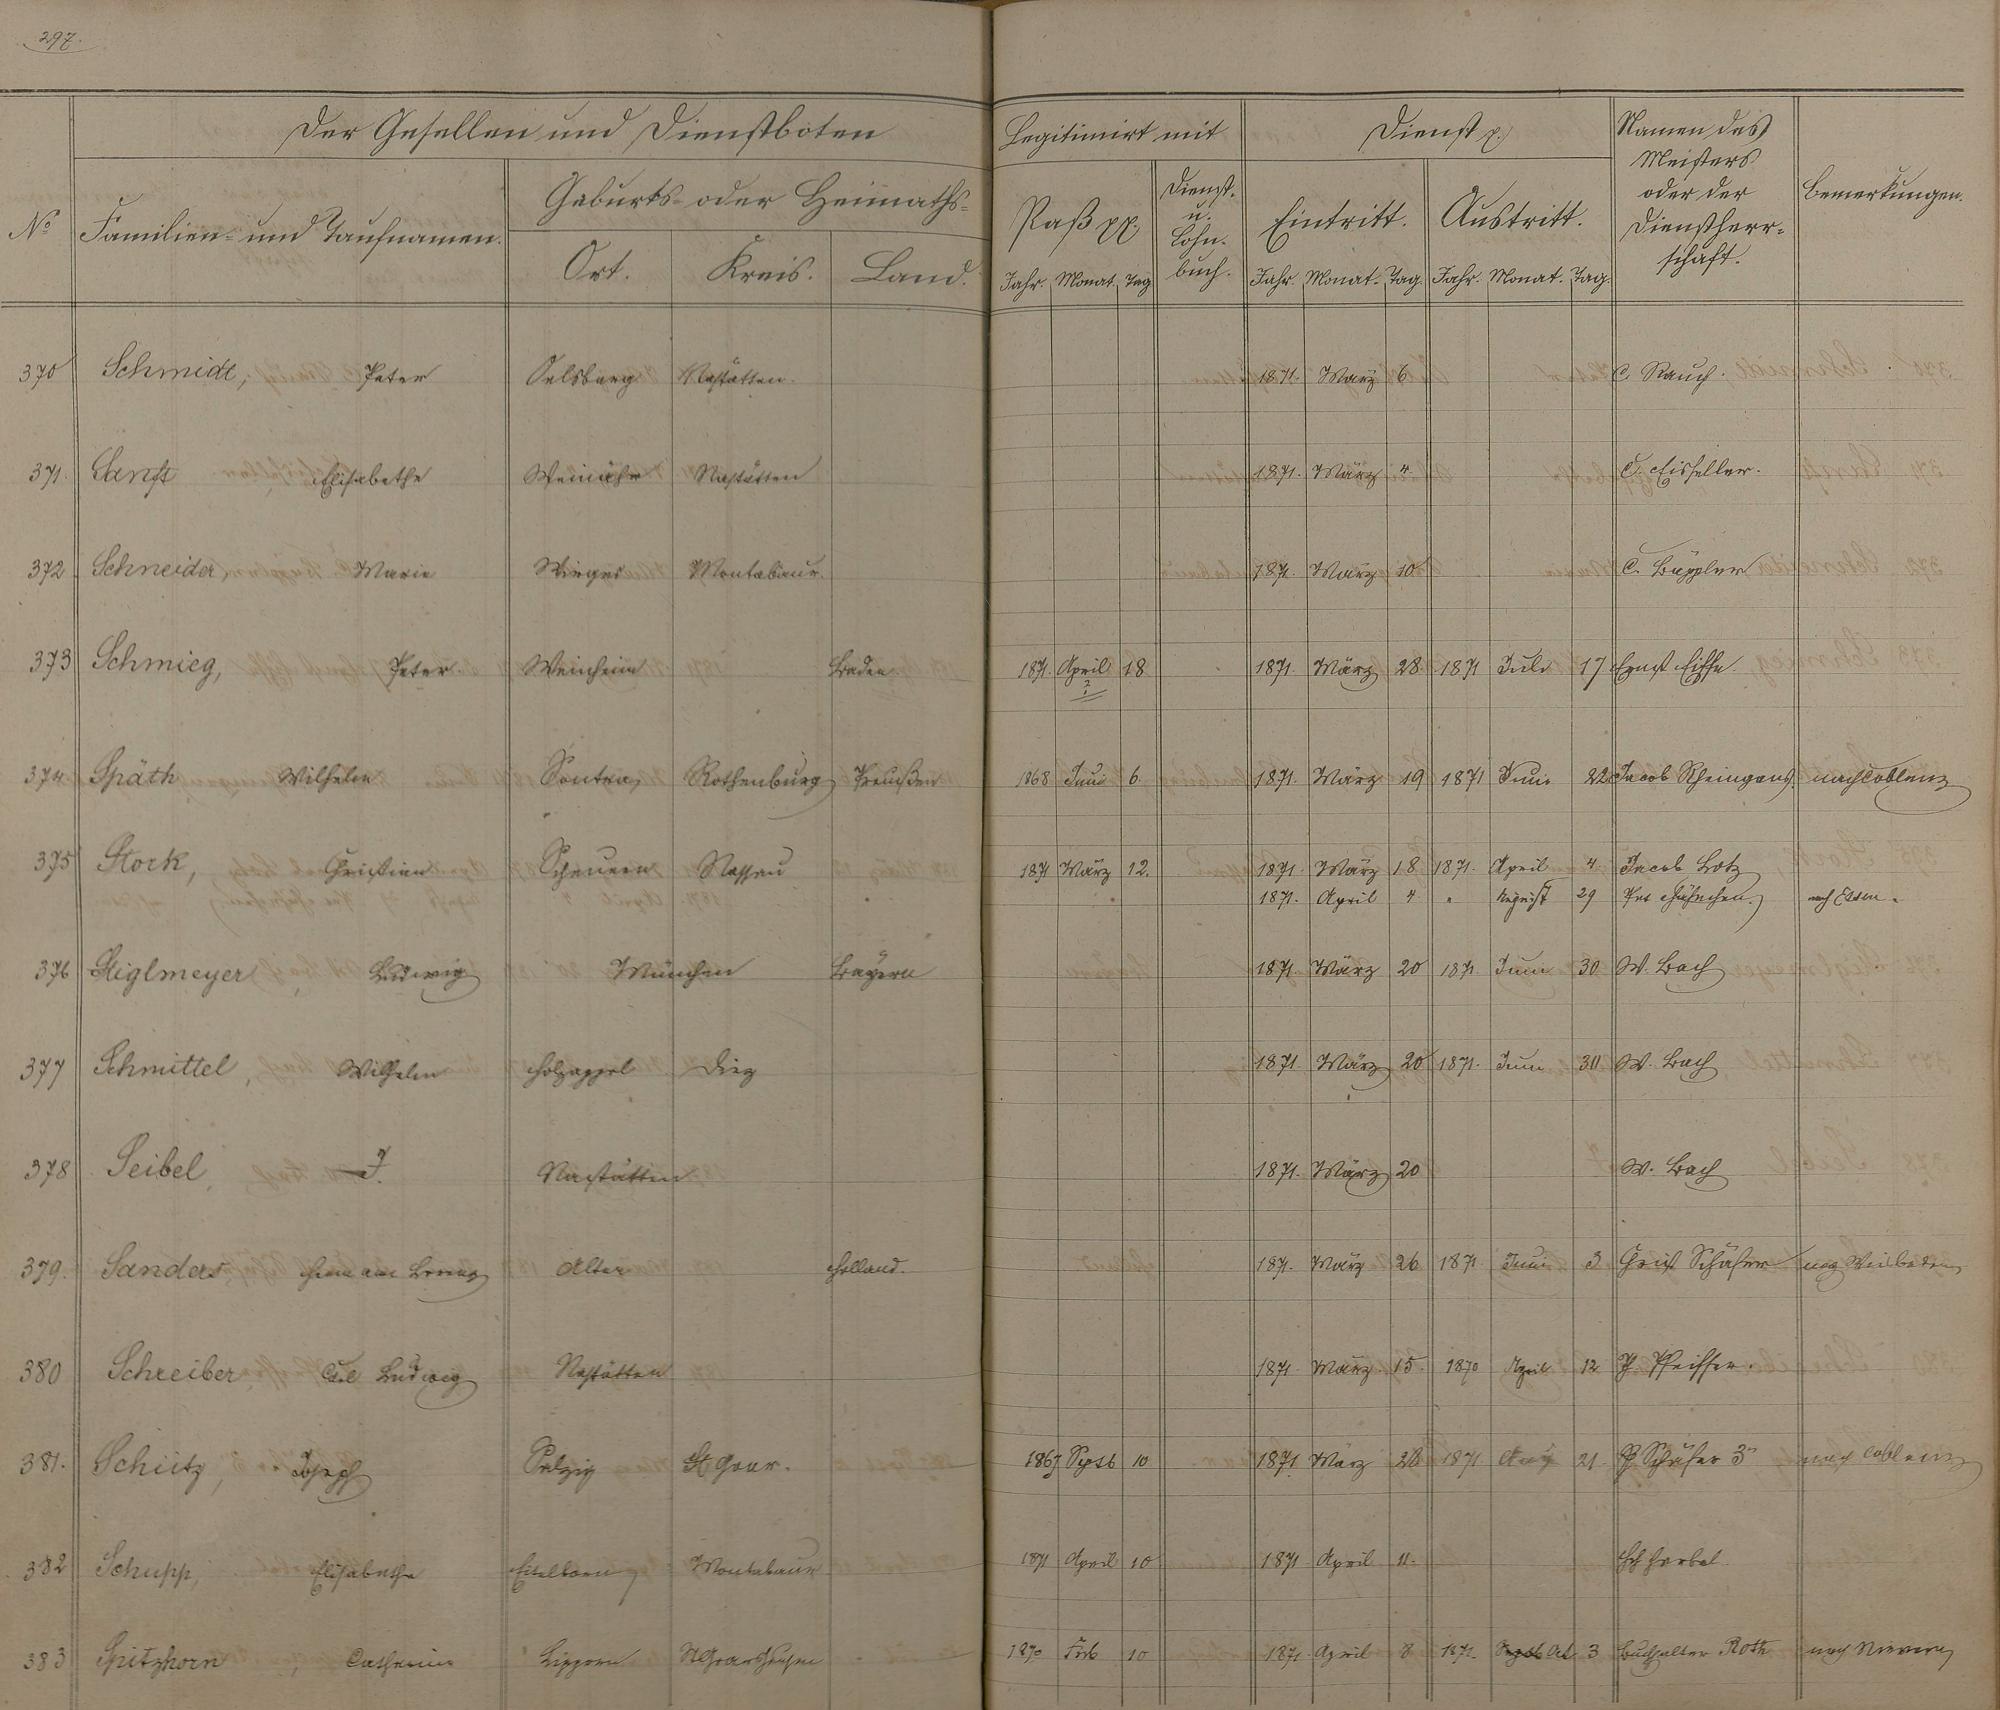 297.
Der Gesellen und Dienstboten
Legitimirt mit
Dienst p.
Namen des Meisters oder der Dienstherrschaft.
Bemerkungen.
No
Familien- und Taufnamen.
Geburts- oder Heimaths-
Ort. Kreis. Land.
Paß pp.
Dienst- u. Lohn- buch.
Eintritt. Austritt.
Jahr. Monat. Tag Jahr. Monat. Tag. Jahr. Monat. Tag.
370 Schmidt, Peter Oelsberg Nastätten. 1871. März 6 C. Rauch.
371. Sanft Elisabethe Weinähr Nastätten 1871. März 4 C. Eisfeller.
372 Schneider, Marie Wirges Montabaur. 1871. März 10 C. Büppler
373 Schmieg, Peter. Weinheim Baden. 1871. April 18 1871. März 28. 1871 Juli 17 Ernst
?
374. Späth Wilhelm Sontra, Rothenburg Preußen 1868 Juni 6 1871. März 19 1871 Juni 22 Jacob Rheingans. nach Coblenz
375 Stork, Christian Scheuern Nassau 1871 März 12. 1871. März 18 1871. April 4 Jacob Lotz
1871. April 4 " August 29 Pet. nach Essen.
376 Stiglmeyer, Ludwig München Bayern 1871. März 20 1871. Juni 30 W. Bach
377 Schmittel, Wilhelm Holzappel Diez 1871 März 20 1871. Juni 30 W. Bach
378 Seibel, J. Nastätten 1871. März 20 W. Bach
379. Sanders Holland. 1871. März 26 1871 Juni 3 Christ Schäfer nach Wiesbaden
380 Schreiber, Carl Ludwig Nastätten 1871. März 15. 1870 April 12 Pfeiffer.
381. Schütz, Joseph St Goar. 1867 Septb 10 1871 März 28 1871 Aug 21. Schäfer 3r nach Coblenz
382 Schupp, Elisabethe Eitelborn Montabaur 1871 April 10 1871 April 11.
383 Spitzhorn, Catharina Lipporn St Goarshausen 1870 Feb 10 1871. April 8 1871. Septb Oct 3 Buchhalter Roth nach Nievern